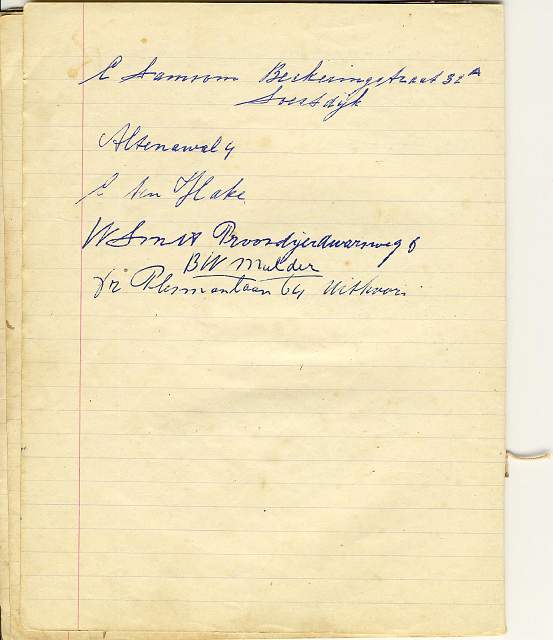 E Samsom Beckeringstraat 32 A
Soestdijk
Altenawal 4
E ten Hake
W Smit Proosdijerdwarsweg 6
BW Mulder
Dr Plesmanlaan 64 Uithoorn